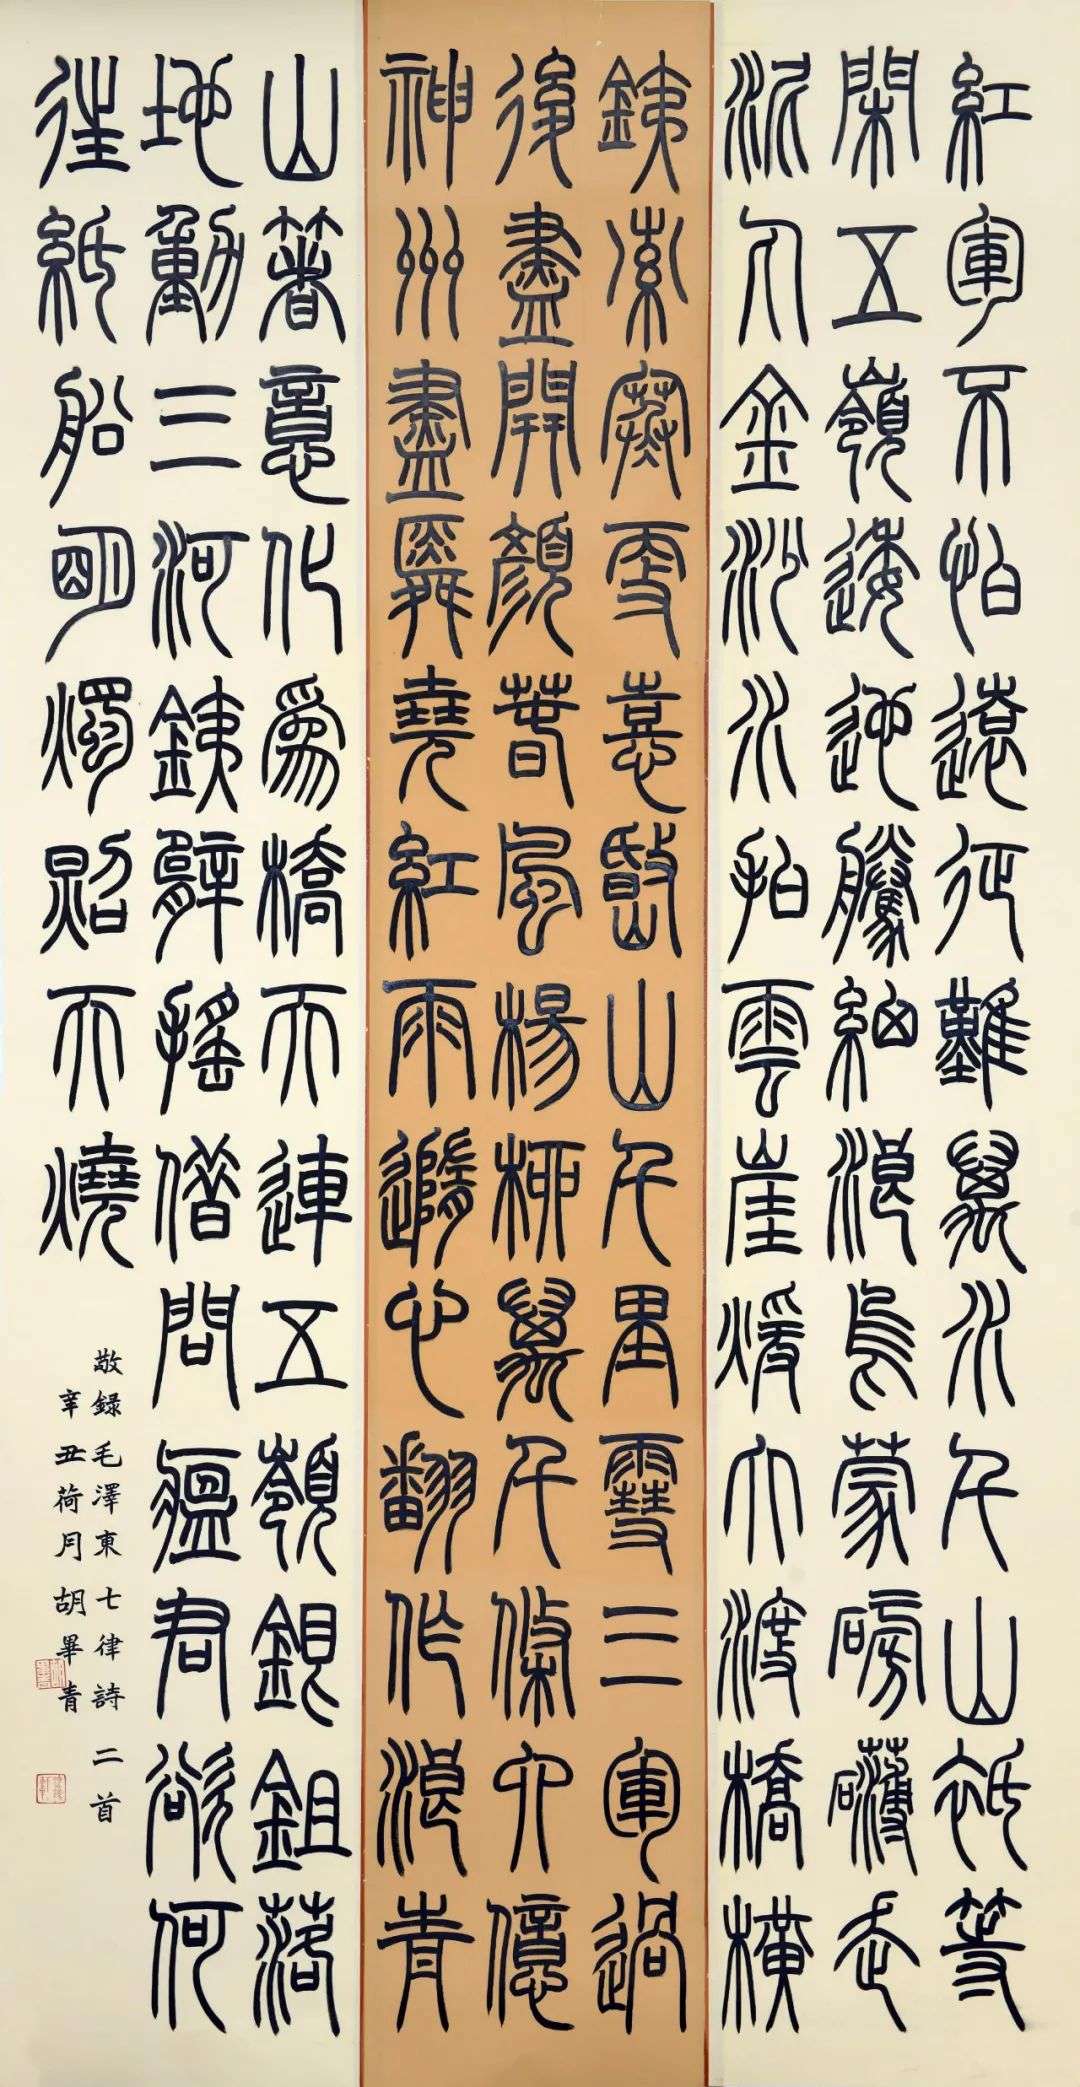 紅軍不怕遠征難萬水千山祇等
閑五嶺逶迤騰細浪烏蒙磅礴走
泥丸金沙水拍雲崖煖大渡橋橫
銕索寒更憙岷山千里雪三軍過
後盡開顏春風楊柳萬千條六億
神州盡舜堯紅雨隨心翻作浪青
山著意化為橋天連五嶺銀鉏落
地動三河銕臂搖借問瘟君欲何
往紙船明燭照天燒
敬録毛澤東七律詩二首
辛丑荷月胡畢青